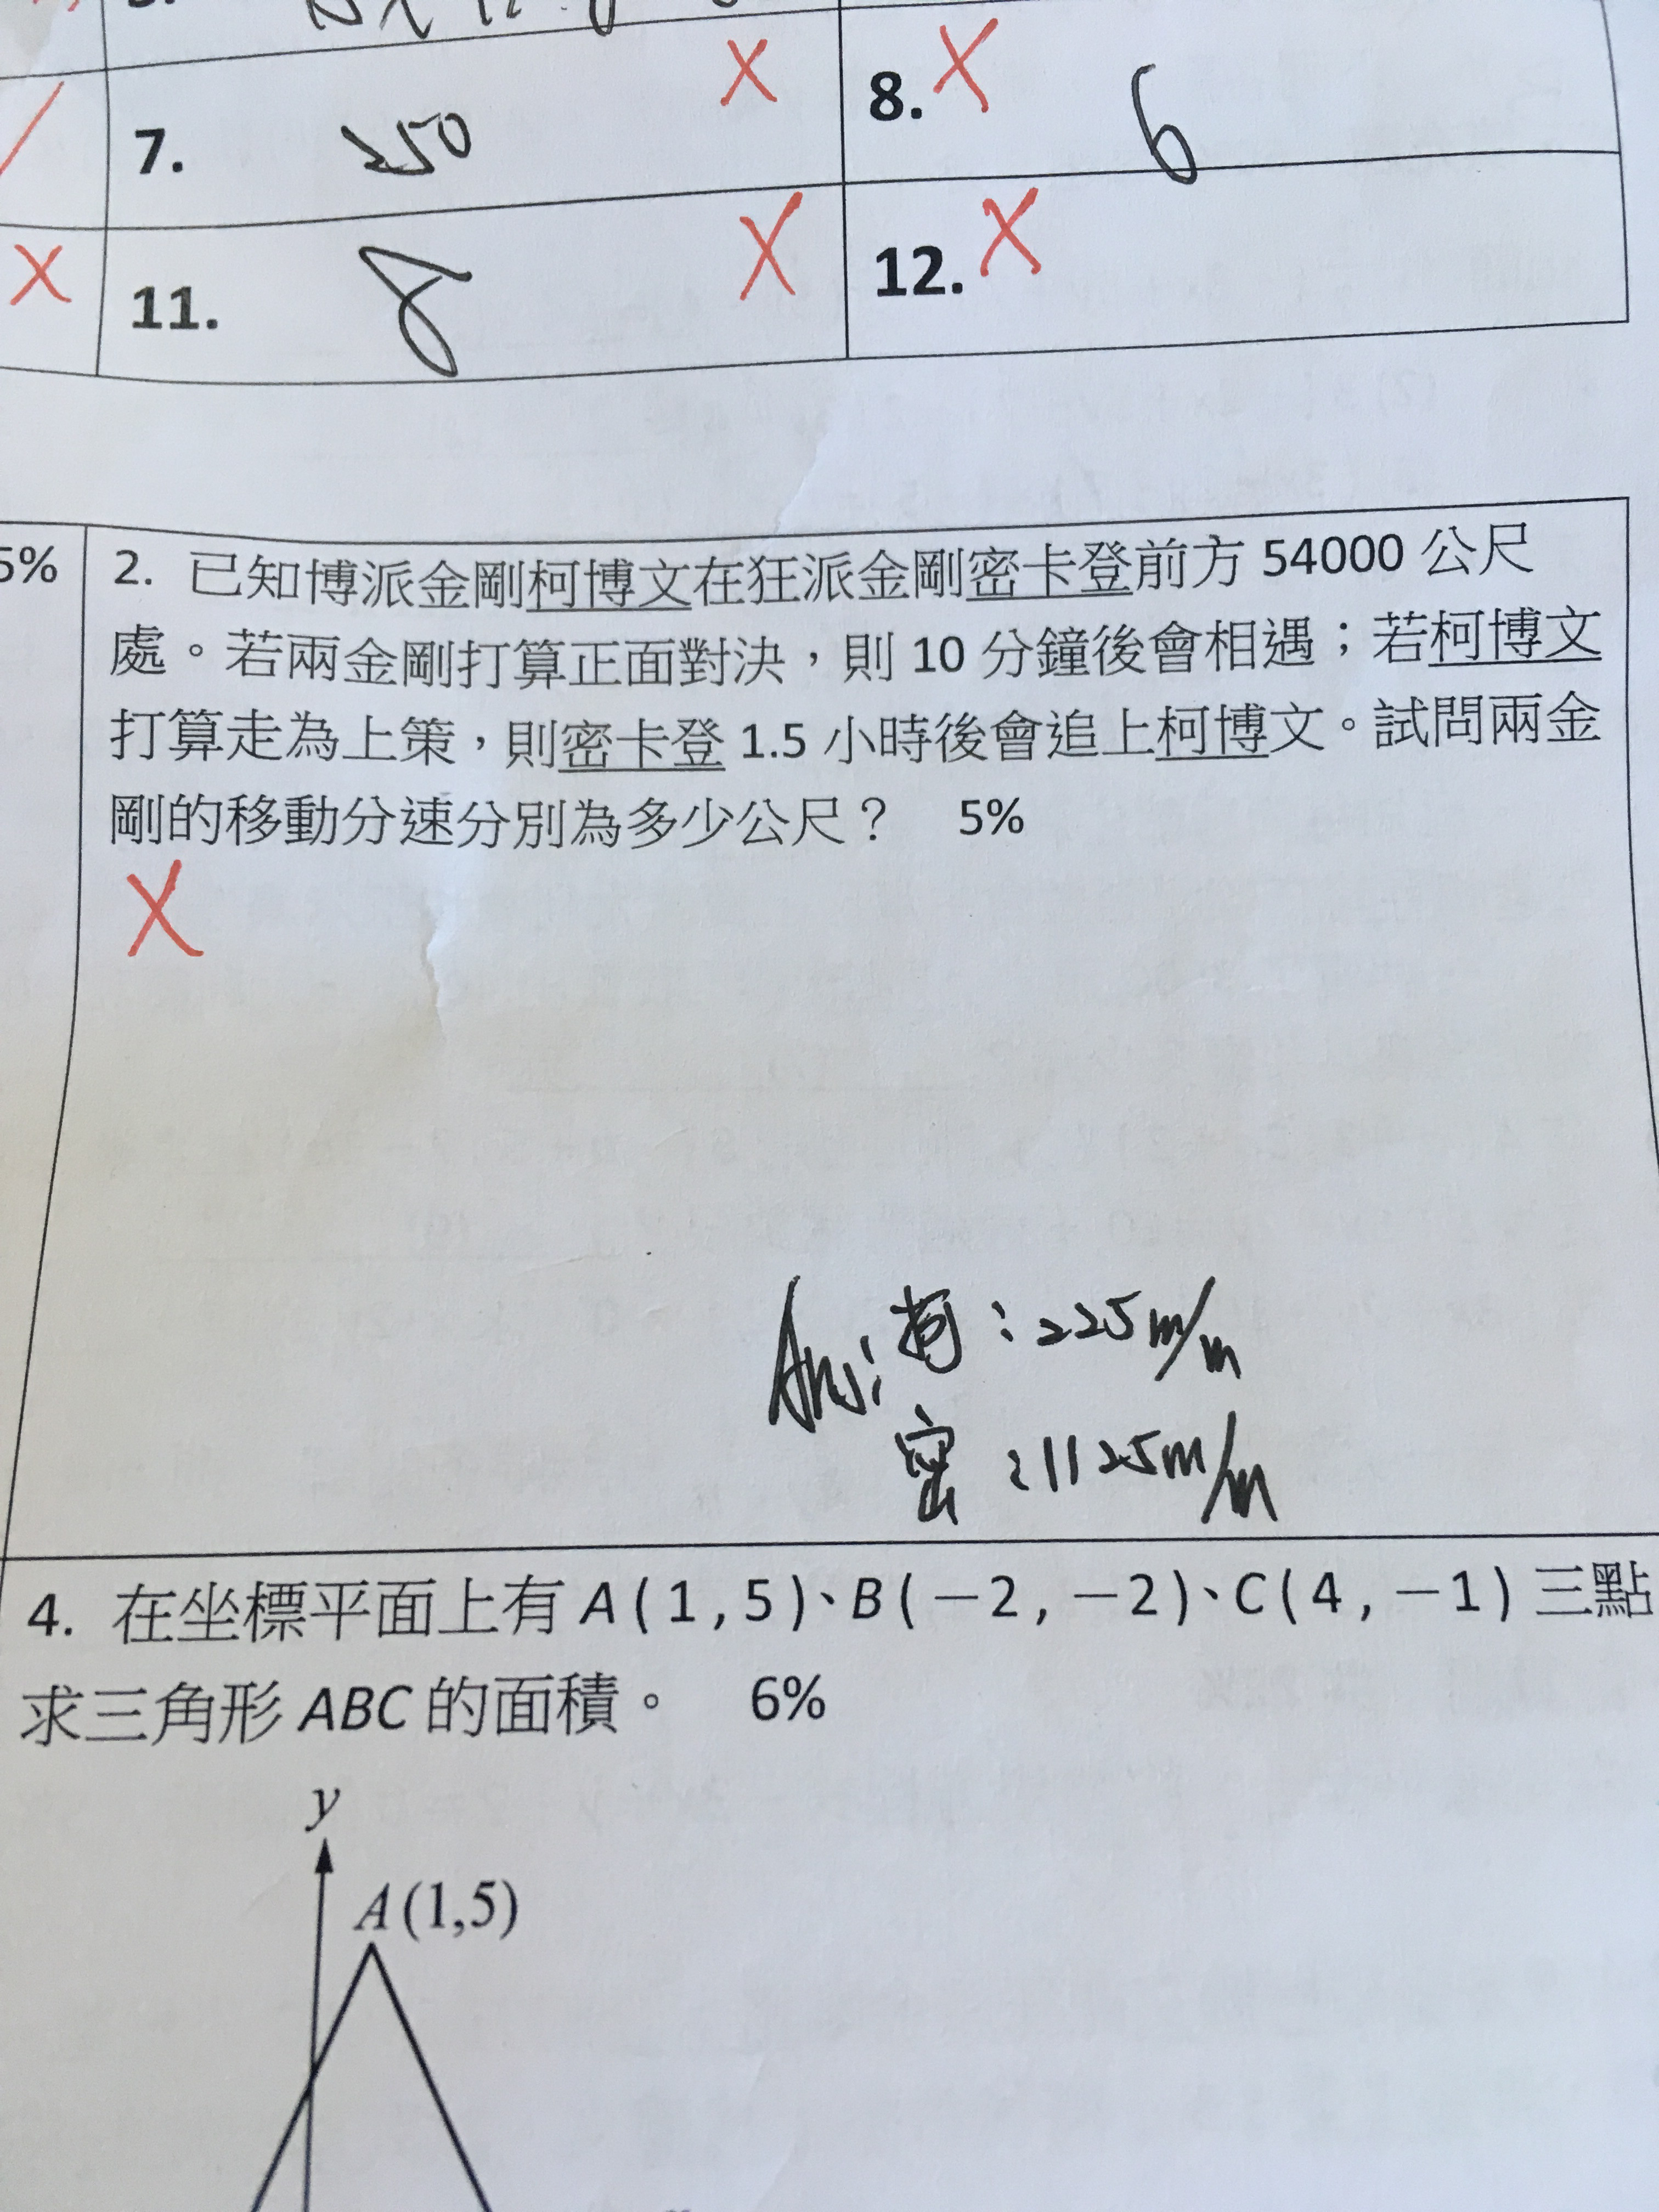 7. 250 X
8. X 6
X
11. 8 X
12. X
5%
2. 已知博派金剛柯博文在狂派金剛密卡登前方 54000 公尺
處。若兩金剛打算正面對決，則 10 分鐘後會相遇；若柯博文
打算走為上策，則密卡登 1.5 小時後會追上柯博文。試問兩金
剛的移動分速分別為多少公尺？ 5%
X
Ans: 柯：225m/m
密：1125m/m
4. 在坐標平面上有 A ( 1 , 5 )、B ( －2 , －2 )、C ( 4 , －1 ) 三點
求三角形 ABC 的面積。 6%
y
A (1,5)